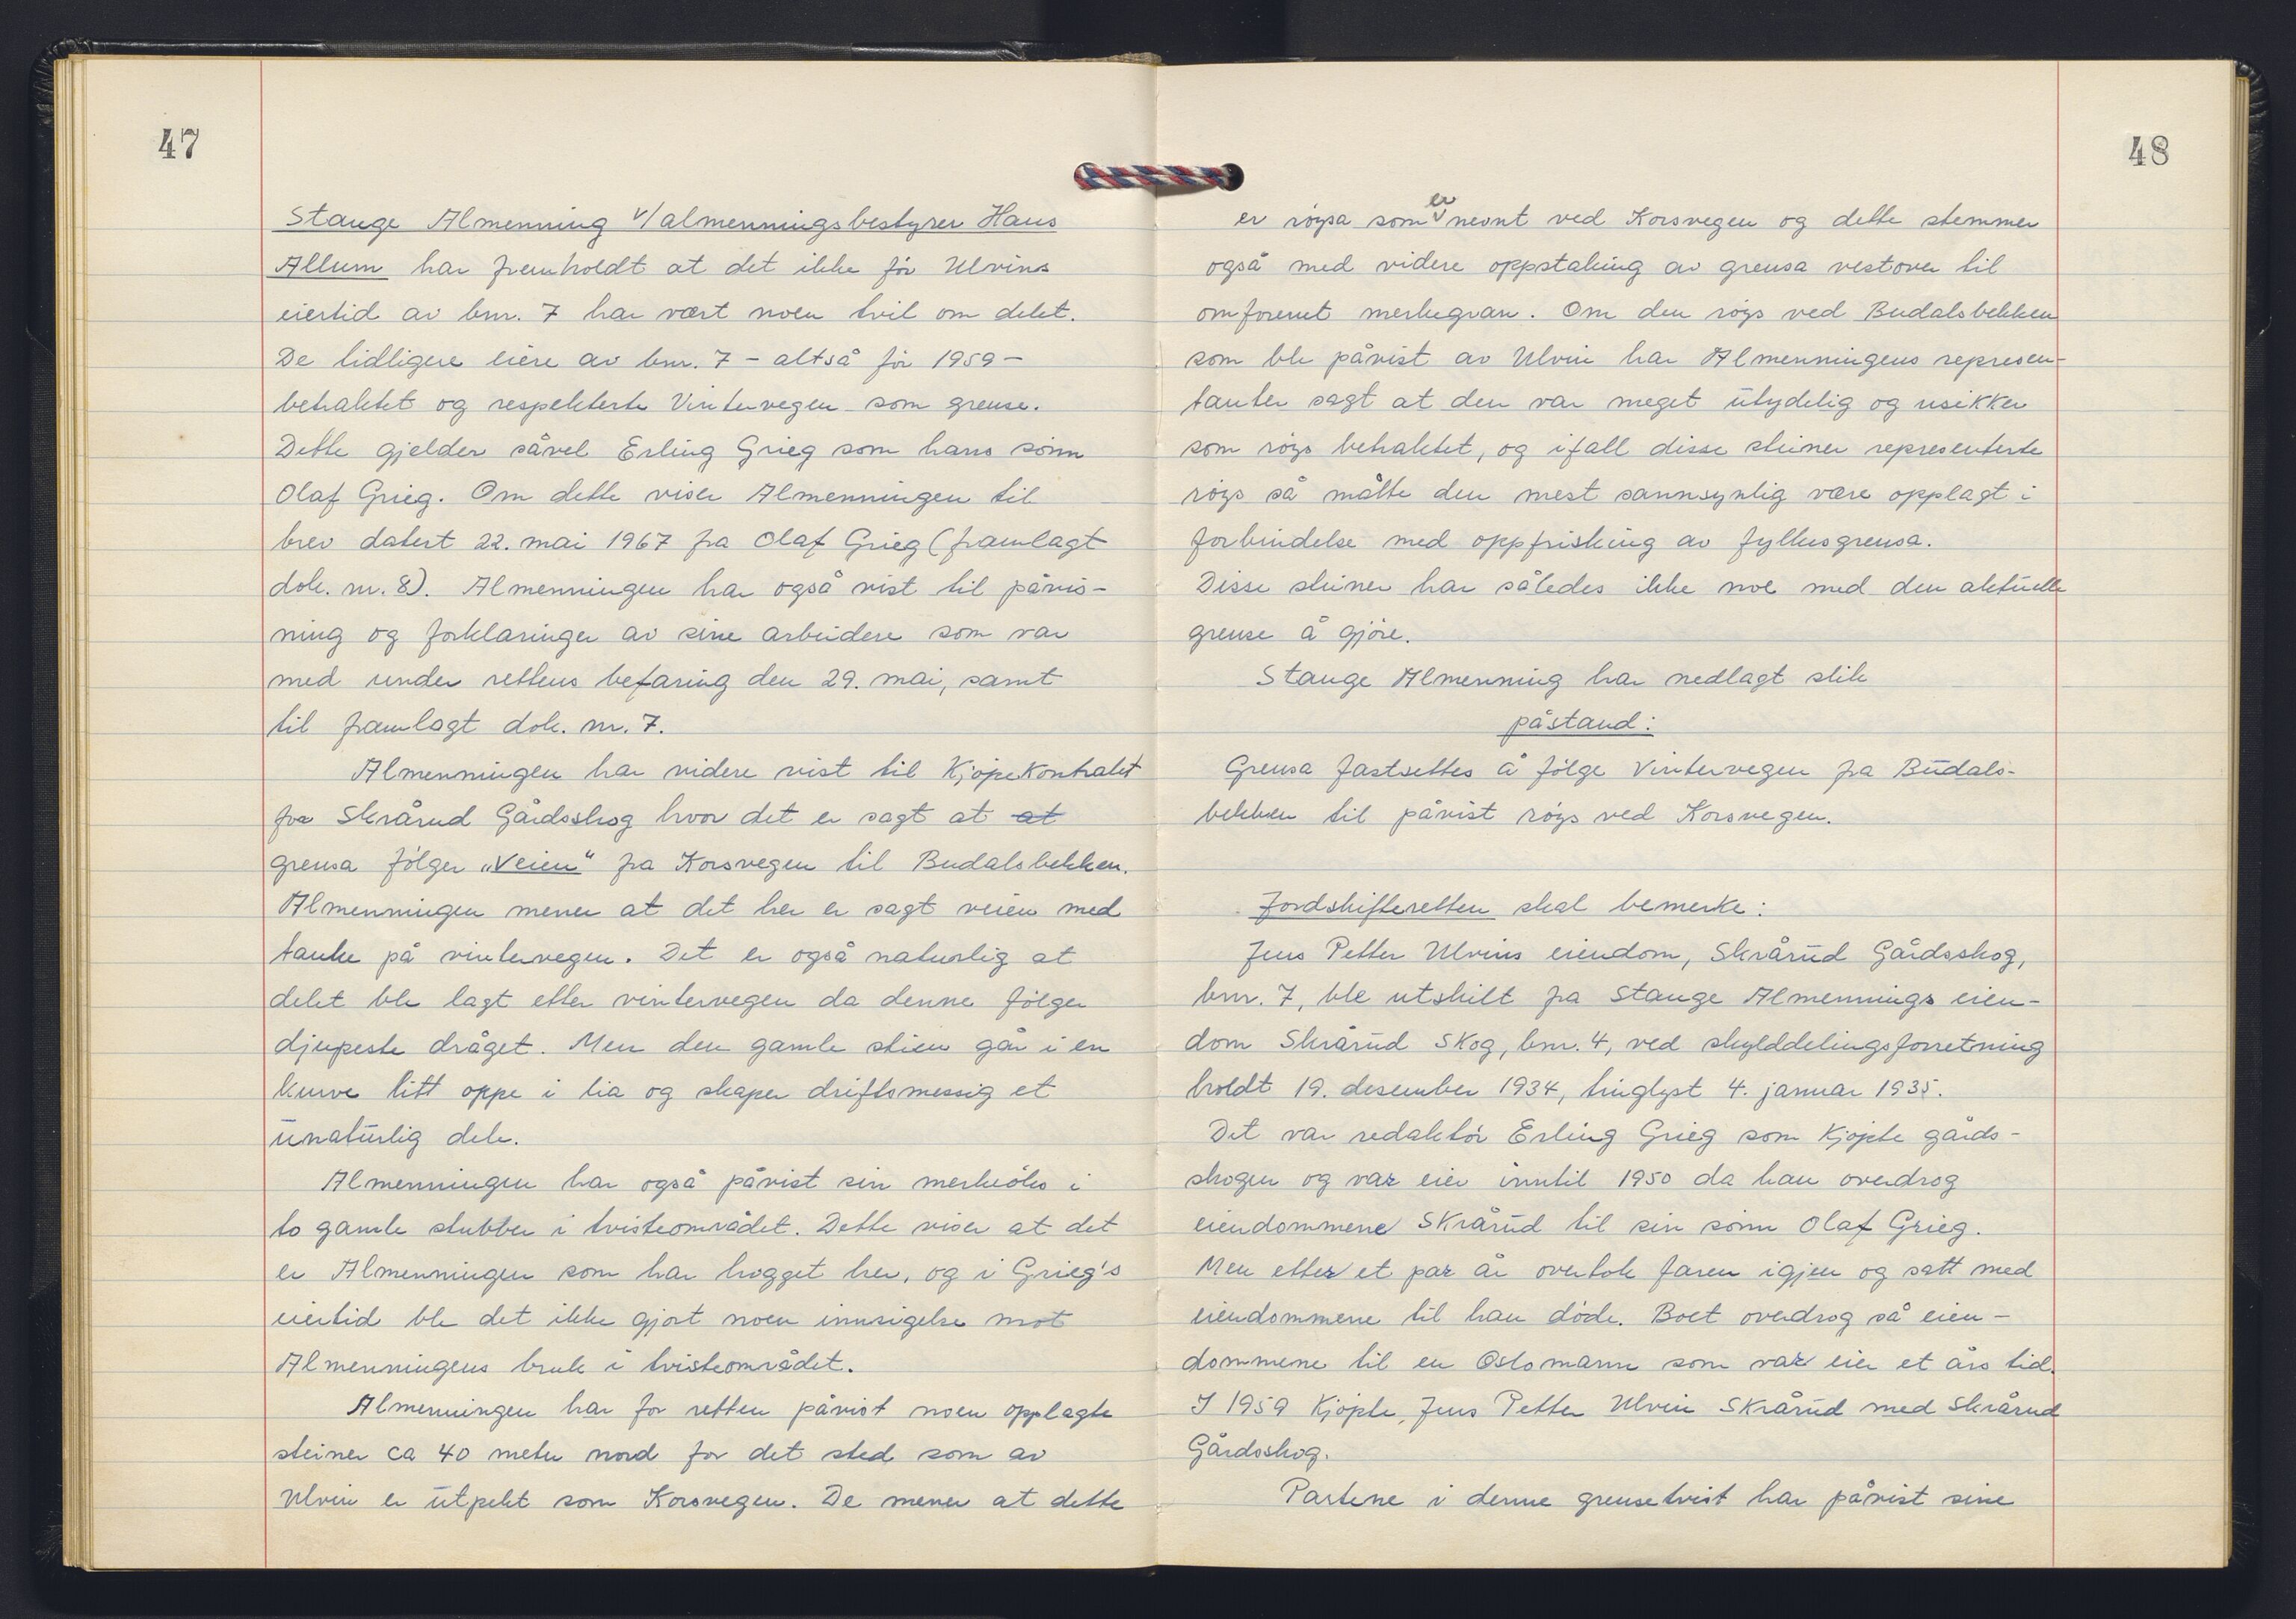 47
Stange Almenning v/almenningsbestyrer Hans
Allum har fremholdt at det ikke før Ulvins
eiertid av bnr. 7 har vært noen tvil om delet.
De tidligere eiere av bnr. 7 - altså før 1959 -
betraktet og respekterte Vintervegen som grense.
Dette gjelder såvel Erling Grieg som hans sønn
Olaf Grieg. Om dette viser Almenningen til
brev datert 22. mai 1967 fra Olaf Grieg (framlagt
dok. nr. 8). Almenningen har også vist til påvis-
ning og forklaringer av sine arbeidere som var
med under rettens befaring den 29. mai, samt
til framlagt dok. nr. 7.
Almenningen har videre vist til Kjøpekontrakt
for Skrårud Gårdsskog hvor det er sagt at at
grensa følger „Veien" fra Korsvegen til Budalsbekken.
Almenningen mener at det her er sagt veien med
tanke på vintervegen. Det er også naturlig at
delet ble lagt etter vintervegen da denne følger
djupeste dråget. Men den gamle stien går i en
kurve litt oppe i lia og skaper driftsmessig et
unaturlig dele.
Almenningen har også påvist sin merkeøks i
to gamle stubber i tvisteområdet. Dette viser at det
er Almenningen som har hogget her, og i Grieg's
eiertid ble det ikke gjort noen innsigelse mot
Almenningens bruk i tvisteområdet.
Almenningen har for retten påvist noen opplagte
steiner ca 40 meter nord for det sted som av
Ulvin er utpekt som Korsvegen. De mener at dette
48
er røysa som er nevnt ved Korsvegen og dette stemmer
også med videre oppstaking av grensa vestover til
omforenet merkegran. Om den røys ved Budalsbekken
som ble påvist av Ulvin har Almenningens represen-
tanter sagt at den var meget utydelig og usikker
som røys betraktet, og ifall disse steiner representerte
røys så måtte den mest sannsynlig være opplagt i
forbindelse med oppfrisking av fylkesgrensa.
Disse steiner har således ikke noe med den aktuelle
grense å gjøre.
Stange Almenning har nedlagt slik
påstand:
Grensa fastsettes å følge Vintervegen fra Budals-
bekken til påvist røys ved Korsvegen.
Jordskifteretten skal bemerke:
Jens Petter Ulvins eiendom, Skrårud Gårdsskog,
bnr. 7, ble utskilt fra Stange Almennings eien-
dom Skrårud Skog, bnr. 4, ved skylddelingsforretning
holdt 19. desember 1934, tinglyst 4. januar 1935.
Det var redaktør Erling Grieg som Kjøpte gårds-
skogen og var eier inntil 1950 da han overdrog
eiendommene Skrårud til sin sønn Olaf Grieg.
Men etter et par år overtok faren igjen og satt med
eiendommene til han døde. Boet overdrog så eien-
dommene til en Oslomann som var eier et års tid.
I 1959 Kjøpte Jens Petter Ulvin Skrårud med Skrårud
Gårdsskog.
Partene i denne grensetvist har påvist sine